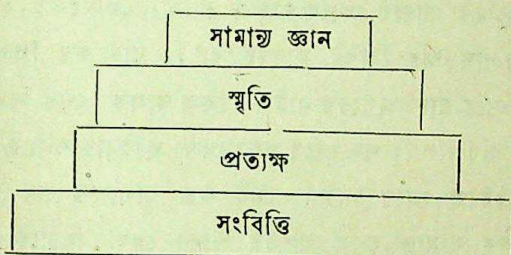 সামান্য জ্ঞান
স্মৃতি
প্রত্যক্ষ
সংবিত্তি